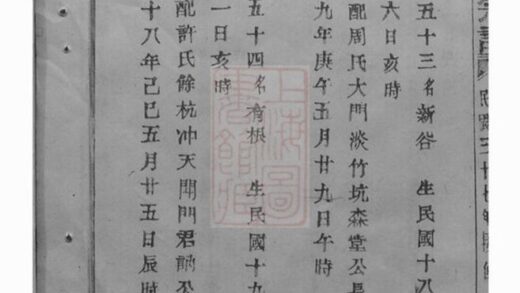 五十三名新谷 生民國十八
六日亥時
配周氏大門淡竹坑森堂公長
九年庚午五月廿九日午時
五十四名有根 生民國十九
一日亥時
配許氏餘杭冲天閗門君訥公
十八年己巳五月廿五日辰時
上海圖書館藏